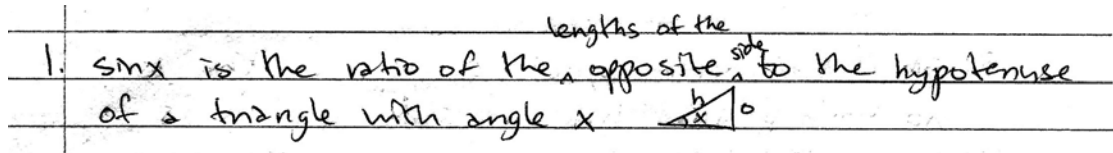 1. sinx is the ratio of the lengths of the opposite side to the hypotenuse
of a triangle with angle x h x o